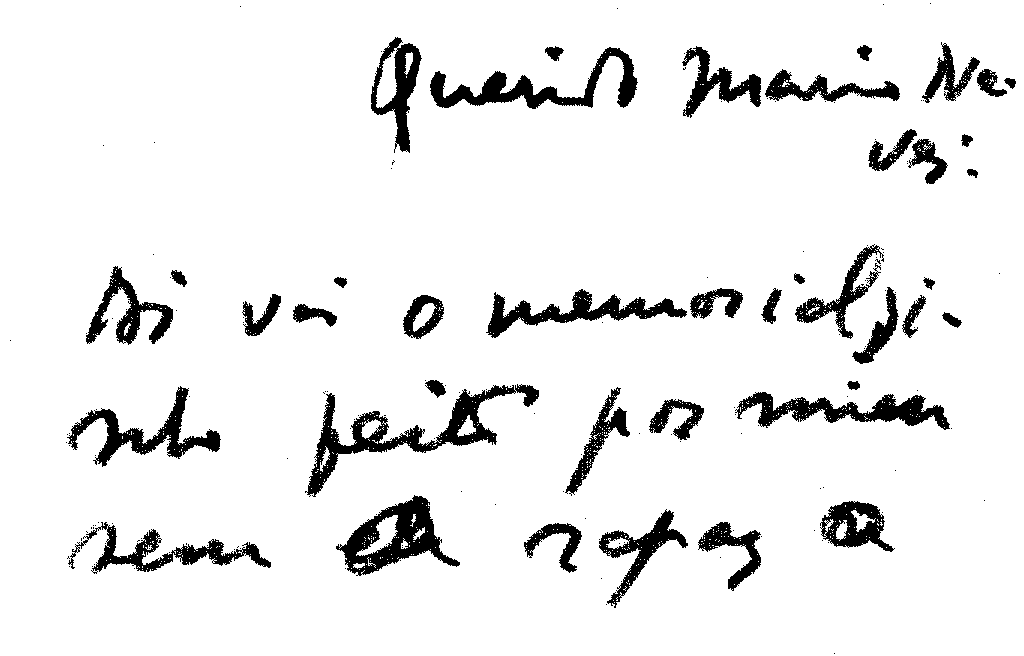 Querido Mario Ne-
ves:
Ai vai o memorialzi-
nho feito por mim
sem rapaz a